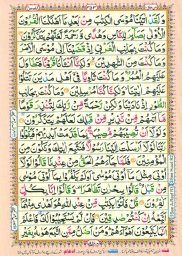 وَلَقَدْ اٰتَيْنَا مُوْسَى الْكِتٰبَ مِنْۢ بَعْدِ مَاۤ اَهْلَكْنَا الْقُرُوْنَ
الْاُوْلٰى بَصَآئِرَ لِلنَّاسِ وَهُدًى وَّرَحْمَةً لَّعَلَّهُمْ يَتَذَكَّرُوْنَ
وَمَا كُنْتَ بِجَانِبِ الْغَرْبِيِّ اِذْ قَضَيْنَاۤ اِلٰى مُوْسَى الْاَمْرَ
وَمَا كُنْتَ مِنَ الشّٰهِدِيْنَ وَلٰكِنَّاۤ اَنْشَاْنَا قُرُوْنًا فَتَطَاوَلَ
عَلَيْهِمُ الْعُمُرُ وَمَا كُنْتَ ثَاوِيًا فِيْۤ اَهْلِ مَدْيَنَ تَتْلُوْا
عَلَيْهِمْ اٰيٰتِنَا وَلٰكِنَّا كُنَّا مُرْسِلِيْنَ وَمَا كُنْتَ بِجَانِبِ
الطُّوْرِ اِذْ نَادَيْنَا وَلٰكِنْ رَّحْمَةً مِّنْ رَّبِّكَ لِتُنْذِرَ قَوْمًا
مَّاۤ اَتٰىهُمْ مِّنْ نَّذِيْرٍ مِّنْ قَبْلِكَ لَعَلَّهُمْ يَتَذَكَّرُوْنَ
وَلَوْلَاۤ اَنْ تُصِيْبَهُمْ مُّصِيْبَةٌۢ بِمَا قَدَّمَتْ اَيْدِيْهِمْ فَيَقُوْلُوْا
رَبَّنَا لَوْلَاۤ اَرْسَلْتَ اِلَيْنَا رَسُوْلًا فَنَتَّبِعَ اٰيٰتِكَ وَنَكُوْنَ مِنَ
الْمُؤْمِنِيْنَ فَلَمَّا جَآءَهُمُ الْحَقُّ مِنْ عِنْدِنَا قَالُوْا لَوْلَاۤ
اُوْتِيَ مِثْلَ مَاۤ اُوْتِيَ مُوْسٰى اَوَلَمْ يَكْفُرُوْا بِمَاۤ اُوْتِيَ مُوْسٰى
مِنْ قَبْلُ قَالُوْا سِحْرٰنِ تَظَاهَرَا وَقَالُوْۤا اِنَّا بِكُلٍّ
كٰفِرُوْنَ قُلْ فَاْتُوْا بِكِتٰبٍ مِّنْ عِنْدِ اللّٰهِ هُوَ اَهْدٰى مِنْهُمَاۤ
اَتَّبِعْهُ اِنْ كُنْتُمْ صٰدِقِيْنَ فَاِنْ لَّمْ يَسْتَجِيْبُوْا لَكَ فَاعْلَمْ
اَنَّمَا يَتَّبِعُوْنَ اَهْوَآءَهُمْ وَمَنْ اَضَلُّ مِمَّنِ اتَّبَعَ هَوٰىهُ